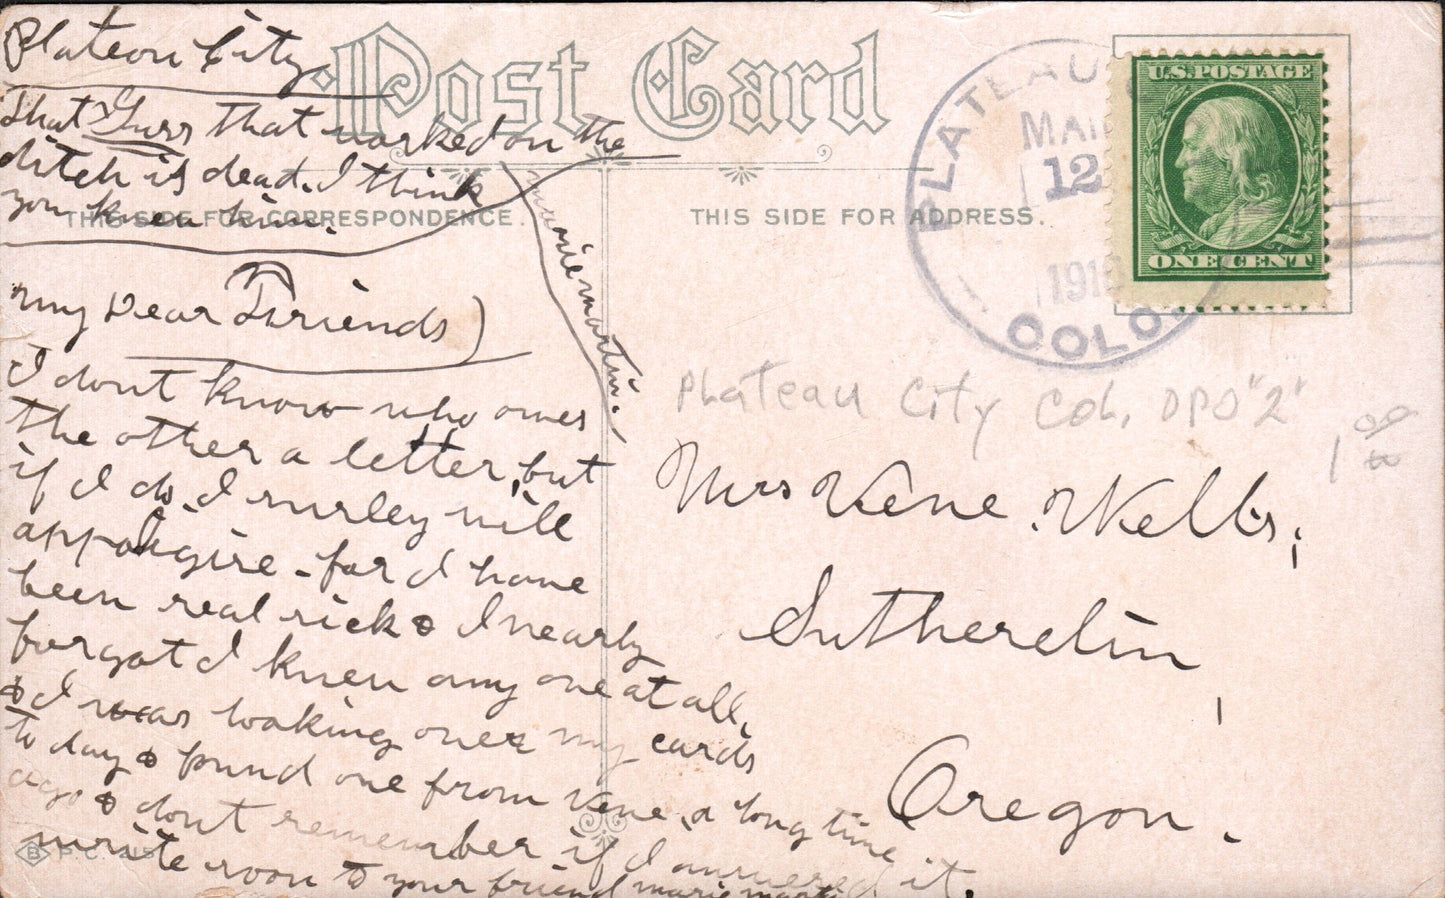 Plateau City
Post Card
That Guss that worked on the
ditch is dead. I think
you knew him.
THIS SIDE FOR CORRESPONDENCE.
THIS SIDE FOR ADDRESS.
marie martin.
my Dear Friends
I dont know who owes
the other a letter, but
if I do, I surley will
appoligise - for I have
been real sick & I nearly
forgot I knew any one at all,
& I was looking over my cards
to day & found one from Vene, a long time
ago & dont remember if I answered it.
write soon to your friend marie
P.C. 215
PLATEAU
MAR
12
1910
COLO.
U.S. POSTAGE
ONE CENT
Plateau City Col. DPO "2"
1 00
Mrs Vene Wells,
Sutherelin,
Oregon.